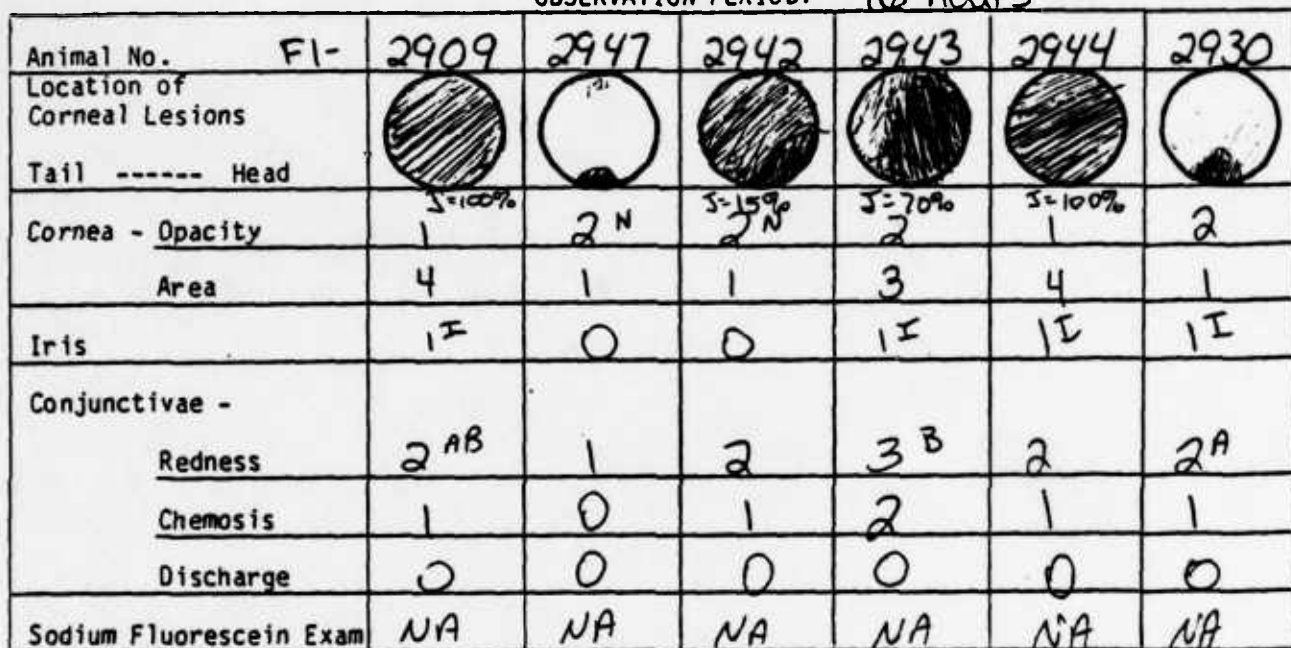 OBSERVATION PERIOD: hours
Animal No. F1- 2909 2947 2942 2943 2944 2930
Location of
Corneal Lesions
Tail ------ Head
J=100% J=15% J=70% J=100%
Cornea - Opacity 1 2 N 2 N 2 1 2
Area 4 1 1 3 4 1
Iris 1 I 0 0 1 I 1 I 1 I
Conjunctivae -
Redness 2 AB 1 2 3 B 2 2 A
Chemosis 1 0 1 2 1 1
Discharge 0 0 0 0 0 0
Sodium Fluorescein Exam NA NA NA NA NA NA